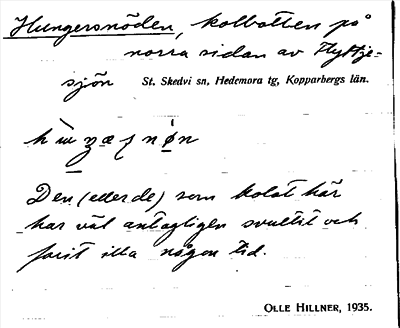 Hungersnöden, kolbotten på
norra sidan av Flyttje-
sjön St. Skedvi sn, Hedemora tg, Kopparbergs län.
Den (eller de) som kolat här
har väl antagligen svultit och
farit illa någon tid.
OLLE HILLNER, 1935.